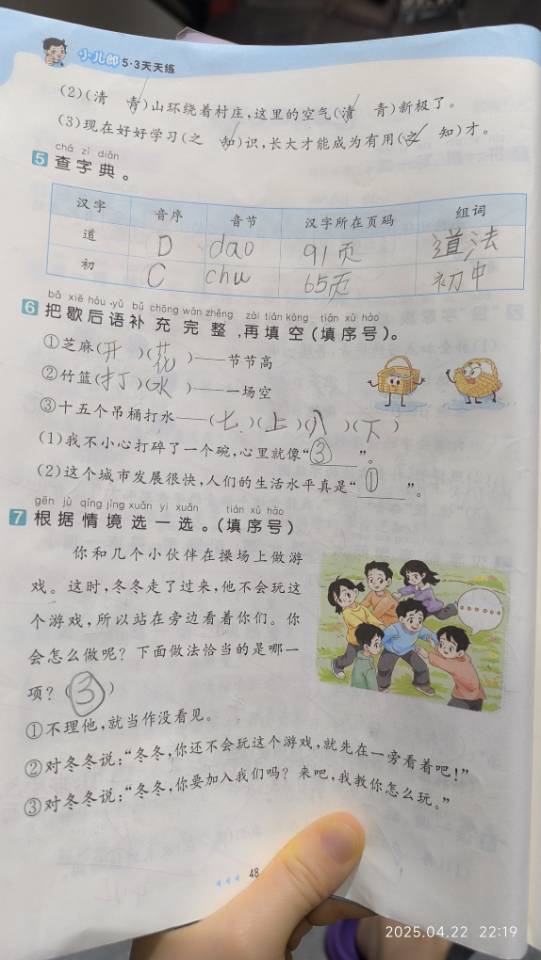 小儿郎 5·3天天练
(2)(清 青)山环绕着村庄,这里的空气(清 青)新极了。
(3)现在好好学习(之 知)识,长大才能成为有用(之 知)才。
chá zì diǎn
5 查字典。
汉字 音序 音节 汉字所在页码 组词
道 D dao 91页 道法
初 C chu 65页 初中
bǎ xiē hòu yǔ bǔ chōng wán zhěng zài tián kòng tián xù hào
6 把歇后语补充完整,再填空(填序号)。
①芝麻(开)(花)——节节高
②竹篮(打)(水)——一场空
③十五个吊桶打水——(七)(上)(八)(下)
(1)我不小心打碎了一个碗,心里就像“③”。
(2)这个城市发展很快,人们的生活水平真是“①”。
gēn jù qíng jìng xuǎn yi xuǎn tián xù hào
7 根据情境选一选。(填序号)
你和几个小伙伴在操场上做游
戏。这时,冬冬走了过来,他不会玩这
个游戏,所以站在旁边看着你们。你
会怎么做呢?下面做法恰当的是哪一
项?(③)
……
①不理他,就当作没看见。
②对冬冬说:“冬冬,你还不会玩这个游戏,就先在一旁看着吧!”
③对冬冬说:“冬冬,你要加入我们吗?来吧,我教你怎么玩。”
48
2025.04.22 22:19